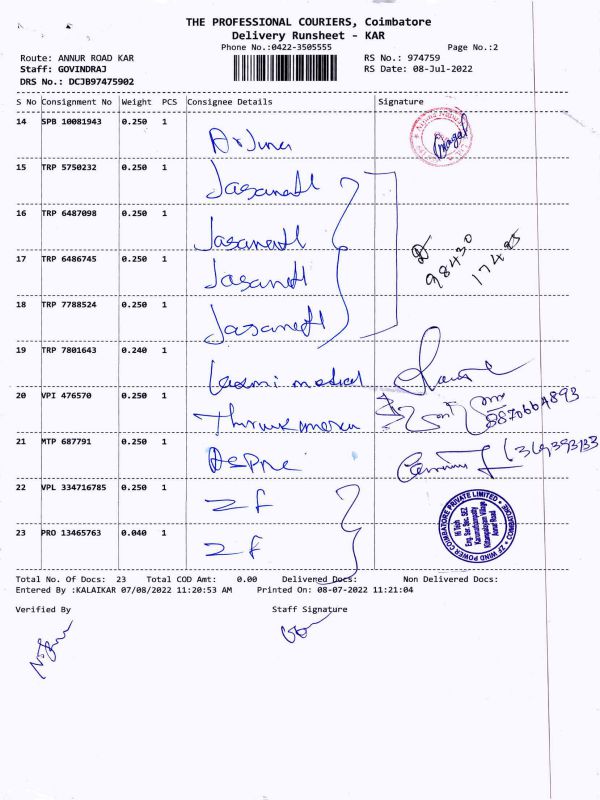 THE PROFESSIONAL COURIERS, Coimbatore
Delivery Runsheet - KAR
Phone No.:0422-3505555
Page No.:2
Route: ANNUR ROAD KAR
RS No.: 974759
Staff: GOVINDRAJ
RS Date: 08-Jul-2022
DRS No.: DCJB97475902
S No Consignment No Weight PCS Consignee Details Signature
14 SPB 10081943 0.250 1
15 TRP 5750232 0.250 1
16 TRP 6487098 0.250 1
17 TRP 6486745 0.250 1
98430
18 TRP 7788524 0.250 1
19 TRP 7801643 0.240 1
Laxmi medical
20 VPI 476570 0.250 1
8870664893
21 MTP 687791 0.250 1
22 VPL 334716785 0.250 1
ZF
23 PRO 13465763 0.040 1
ZF
ZF WIND POWER COIMBATORE PRIVATE LIMITED
COIMBATORE
Hi Tech
Eng. Ser. Sec. SEZ
Annur Road
Total No. Of Docs: 23 Total COD Amt: 0.00 Delivered Docs: Non Delivered Docs:
Entered By :KALAIKAR 07/08/2022 11:20:53 AM Printed On: 08-07-2022 11:21:04
Verified By Staff Signature